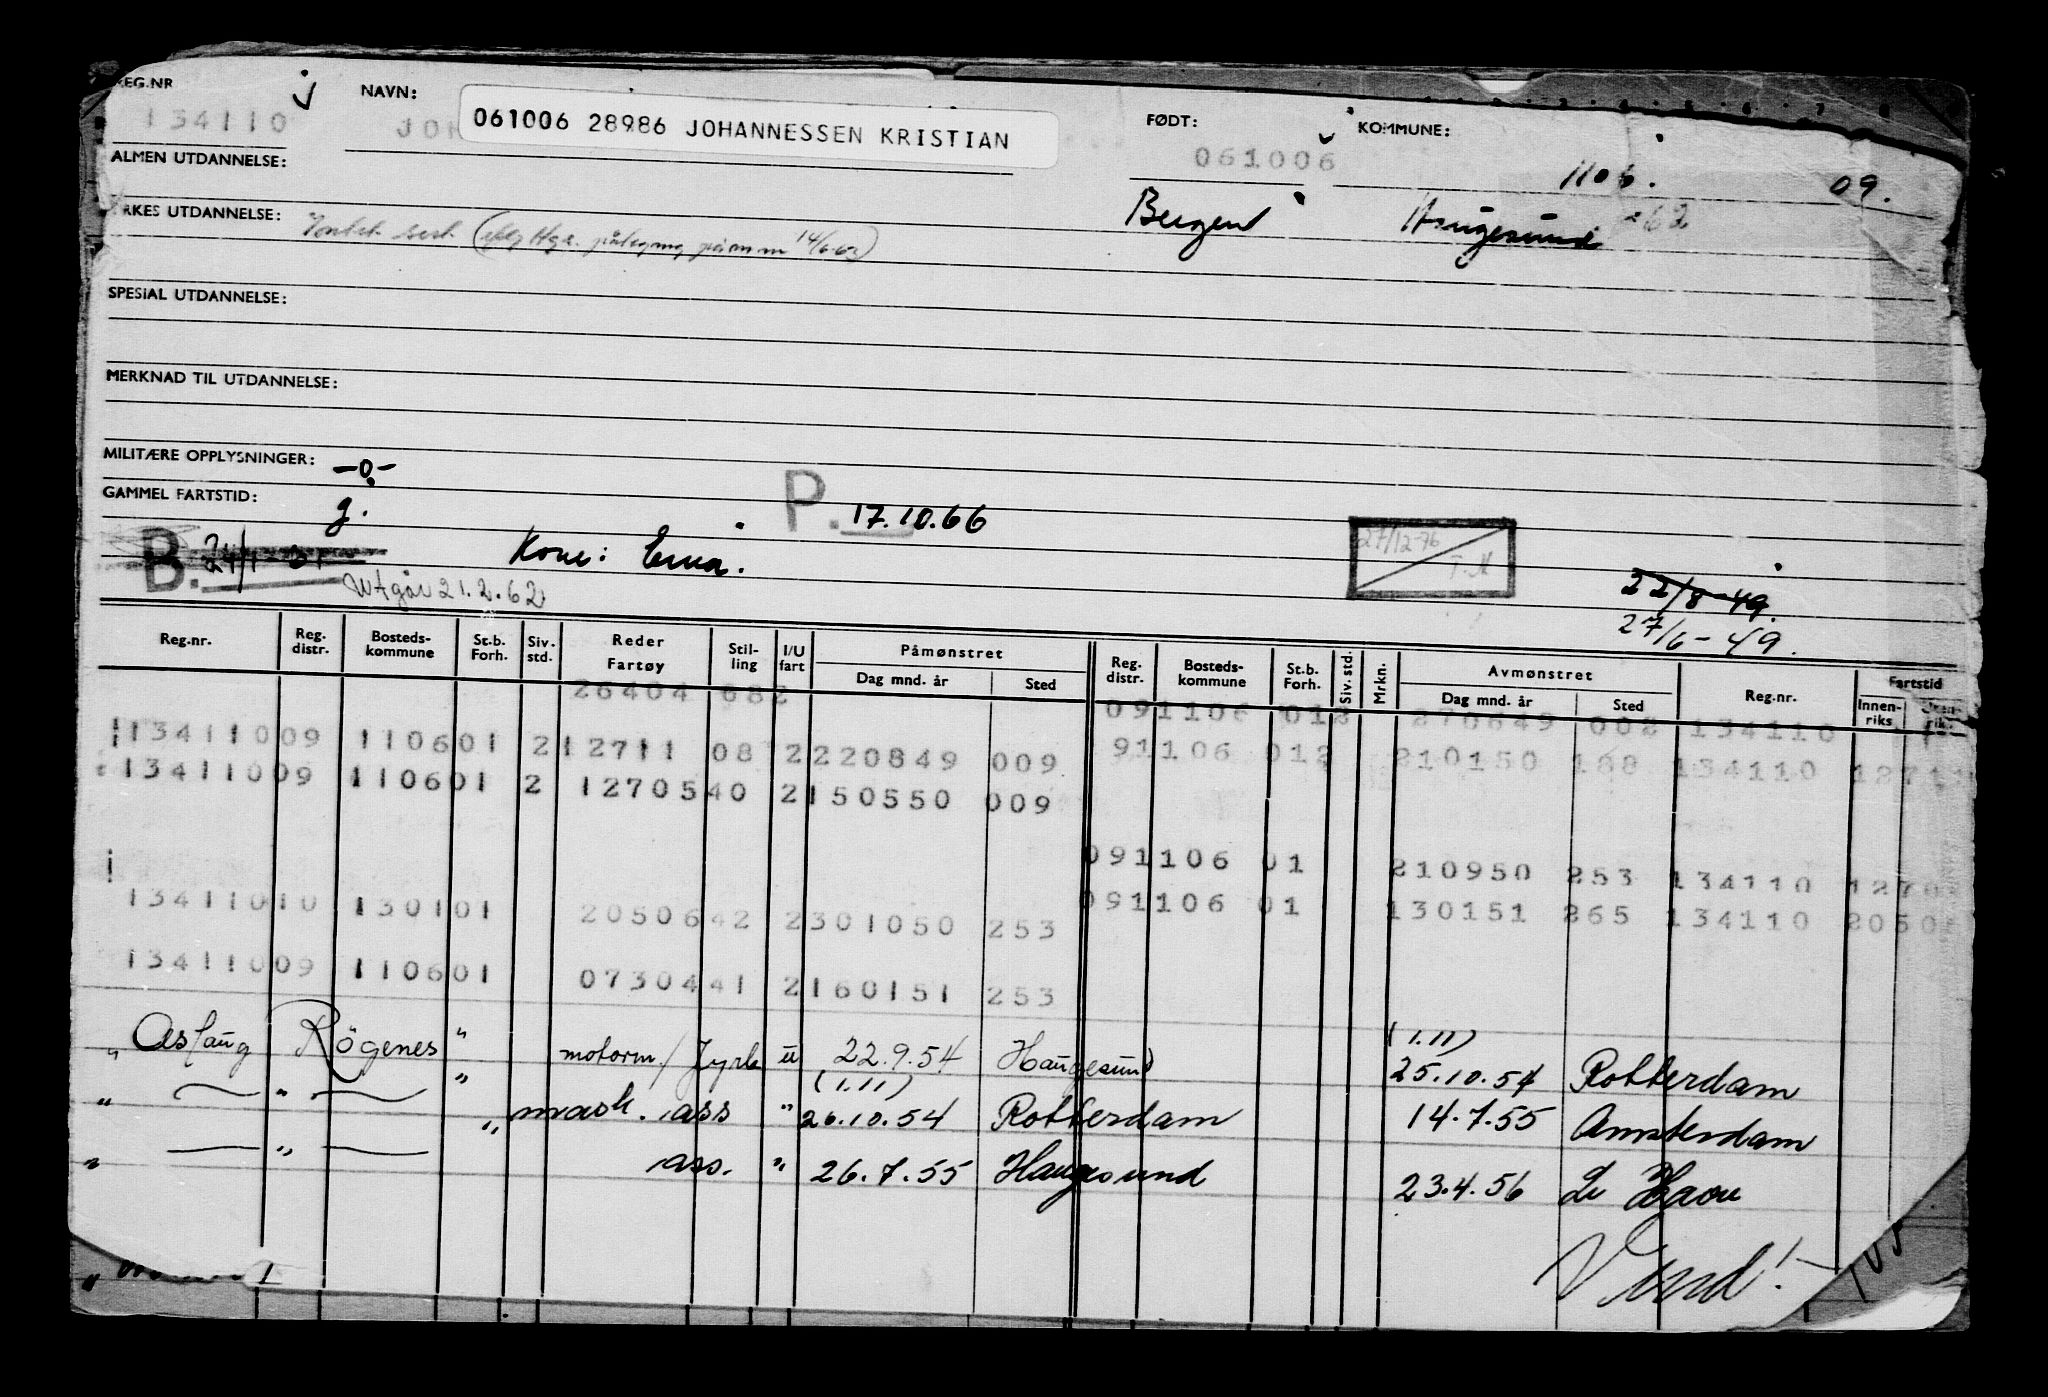 REG.NR NAVN: FØDT: KOMMUNE:
134110 JOH 061006 28986 JOHANNESSEN KRISTIAN 061006 1106. 09.
ALMEN UTDANNELSE:
Bergen Haugesund -62
RKES UTDANNELSE: 14/6-63)
SPESIAL UTDANNELSE:
MERKNAD TIL UTDANNELSE:
MILITÆRE OPPLYSNINGER: -0-
GAMMEL FARTSTID: g. P. 17.10.66
27/12-76
B. 24/1 Kone: Erna. T.M 22/8-49.
Utgår 21.2.62 27/6-49.
Reg.nr. Reg. distr. Bosteds-kommune St.b. Forh. Siv. std. Reder Fartøy Stil-ling I/U fart Påmønstret Dag mnd. år Sted Reg. distr. Bosteds-kommune St.b. Forh. Siv. std. Mrkn. Avmønstret Dag mnd. år Sted Reg.nr. Fartstid Innen-riks
26404 682 091106 012 270849 002 134110
13411009 110601 2 12711 08 2 220849 009 91106 012 210150 188 134110 1271
13411009 110601 2 12705 40 2 150550 009
091106 01 210950 253 134110 1270
13411010 130101 20506 42 2 301050 253 091106 01 130151 265 134110 2050
13411009 110601 07304 41 2 160151 253
(1.11)
" Aslaug Rögenes " motorm/ u 22.9.54 Haugesund 25.10.54 Rotterdam
(1.11)
" — " — " mask. ass " 26.10.54 Rotterdam 14.7.55 Amsterdam
" — " — " ass. " 26.7.55 Haugesund 23.4.56 Le Havre
Vend!